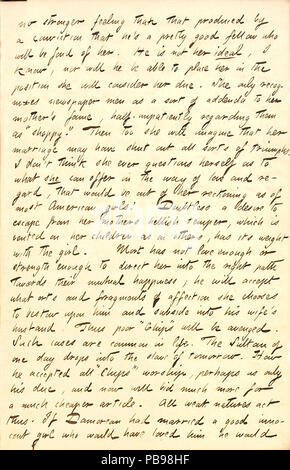 no stronger feeling than that produced by
a conviction that he's a pretty good fellow who
will be fond of her. He is not her ideal, I
know, nor will he be able to place her in the
position she will consider her due. She only recog-
nizes newspaper men as a sort of addenda to her
mother's fame, half-impatiently regarding them
as "shoppy." Then too she will imagine that her
marriage may have shut out all sorts of triumphs.
I don't think she ever questions herself as to
what she can offer in the way of love and re-
gard, that would be out of her reckoning as of
most American girls. Doubtless a desire to
escape from her mother's hellish temper, which is
vented on her children as on others, has its weight
with the girl. Mort has not love enough or
strength enough to direct her into the right path
towards their mutual happiness; he will accept
what orts and fragments of affection she chooses
to bestow upon him and subside into his wife's
husband. Thus poor "Chips" will be avenged.
Such cases are common in life. The Sultan of
one day drops into the slave of tomorrow. How
he accepted all "Chips'" worship, perhaps as only
his due, and now will bid much more for
a much cheaper article. All weak natures act
thus. If Damoreau had married a good inno-
cent girl who would have loved him he would
alamy
Image ID: P898HF
www.alamy.com